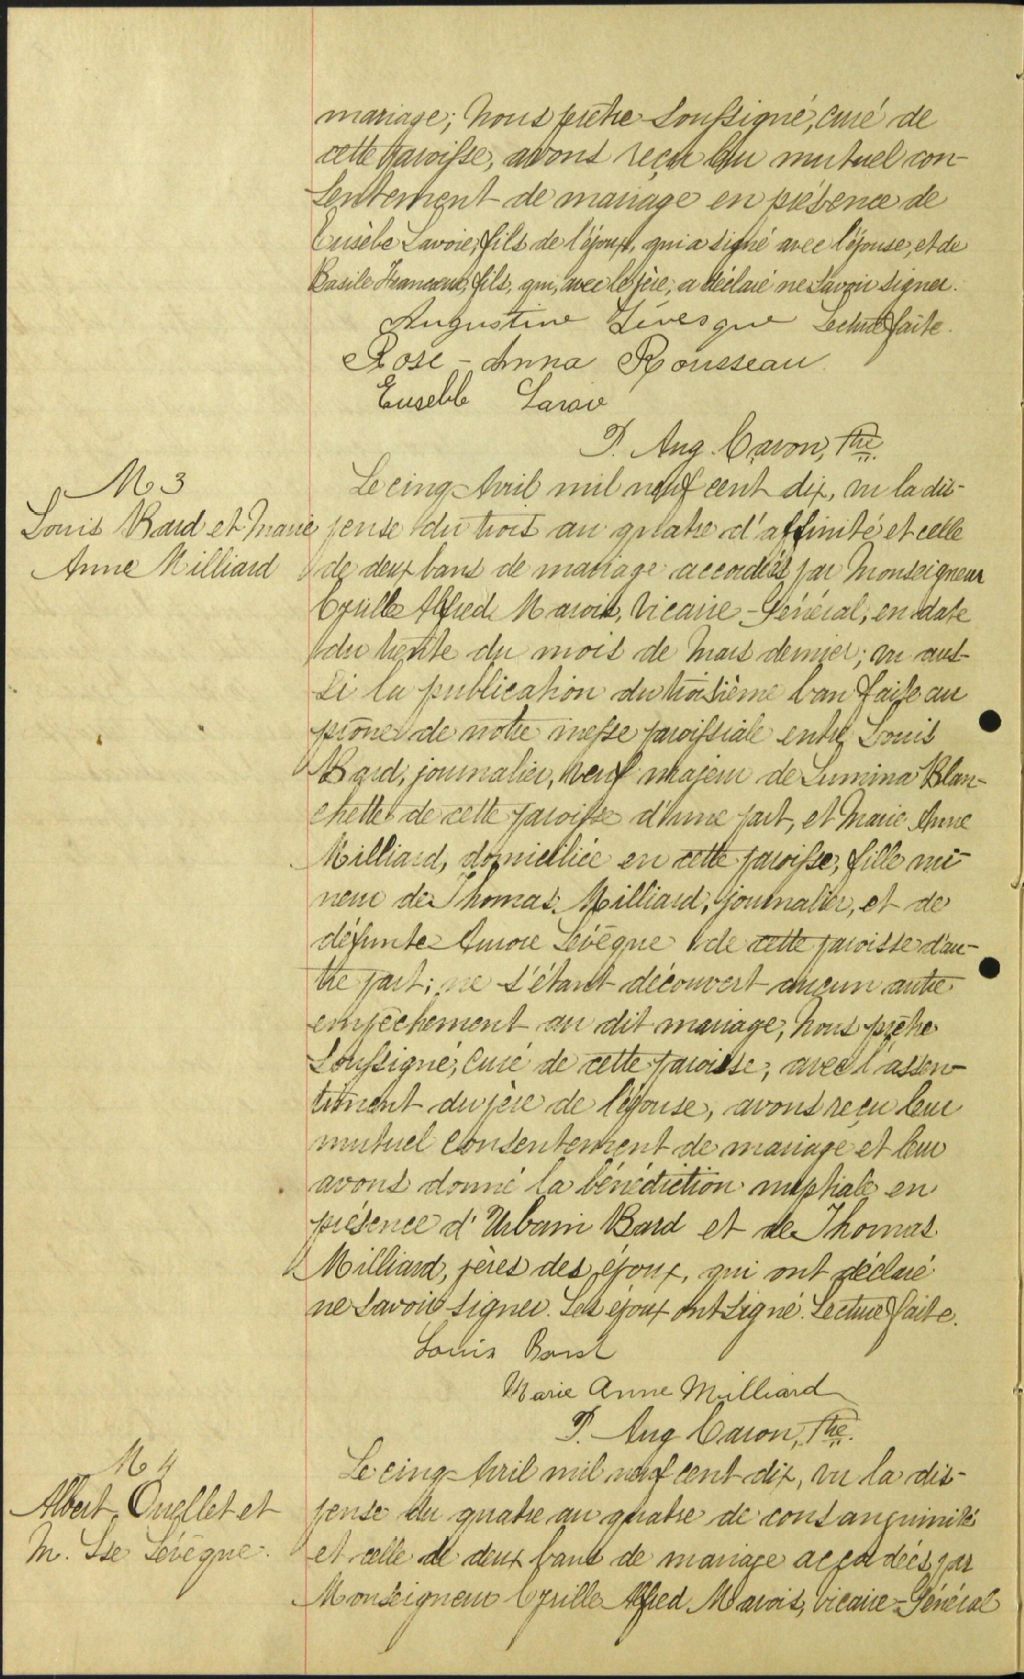 mariage; Nous prêtre soussigné, curé de
cette paroisse, avons reçu leur mutuel con-
sentement de mariage en présence de
Eusèbe Lavoie, fils de l'époux, qui a signé avec l'épouse, et de
Basile Francoeur, fils, qui, avec le père, a déclaré ne savoir signer.
Augustine Lévesque Lecture faite.
Rose-Anna Rousseau
Eusebbe Lavoie
P. Aug. Caron, Ptre.
M 3
Louis Bard et Marie
Anne Milliard
Le cinq Avril mil neuf cent dix, vu la dis-
pense du trois au quatre d'affinité et celle
de deux bans de mariage accordées par Monseigneur
Cyrille Alfred Marois, Vicaire-Général, en date
du trente du mois de Mars dernier; vu aus-
si la publication du troisième ban faite au
prône de notre messe paroissiale entre Louis
Bard, journalier, veuf majeur de Lumina Blan-
chette de cette paroisse d'une part, et Marie Anne
Milliard, domiciliée en cette paroisse, fille mi-
neure de Thomas Milliard, journalier, et de
défunte Aurore Lévêque de cette paroisse d'au-
tre part; ne s'étant découvert aucun autre
empêchement au dit mariage; Nous prêtre
soussigné, curé de cette paroisse, avec l'assen-
timent du père de l'épouse, avons reçu leur
mutuel consentement de mariage et leur
avons donné la bénédiction nuptiale en
présence d'Urbain Bard et de Thomas
Milliard, pères des époux, qui ont déclaré
ne savoir signer. Les époux ont signé. Lecture faite.
Louis Bard
Marie Anne Milliard
P. Aug Caron, Ptre.
M 4
Albert Ouellet et
M. Lse Lévêque.
Le cinq Avril mil neuf cent dix, vu la dis-
pense du quatre au quatre de consanguinité
et celle de deux bans de mariage accordées par
Monseigneur Cyrille Alfred Marois, vicaire-Général